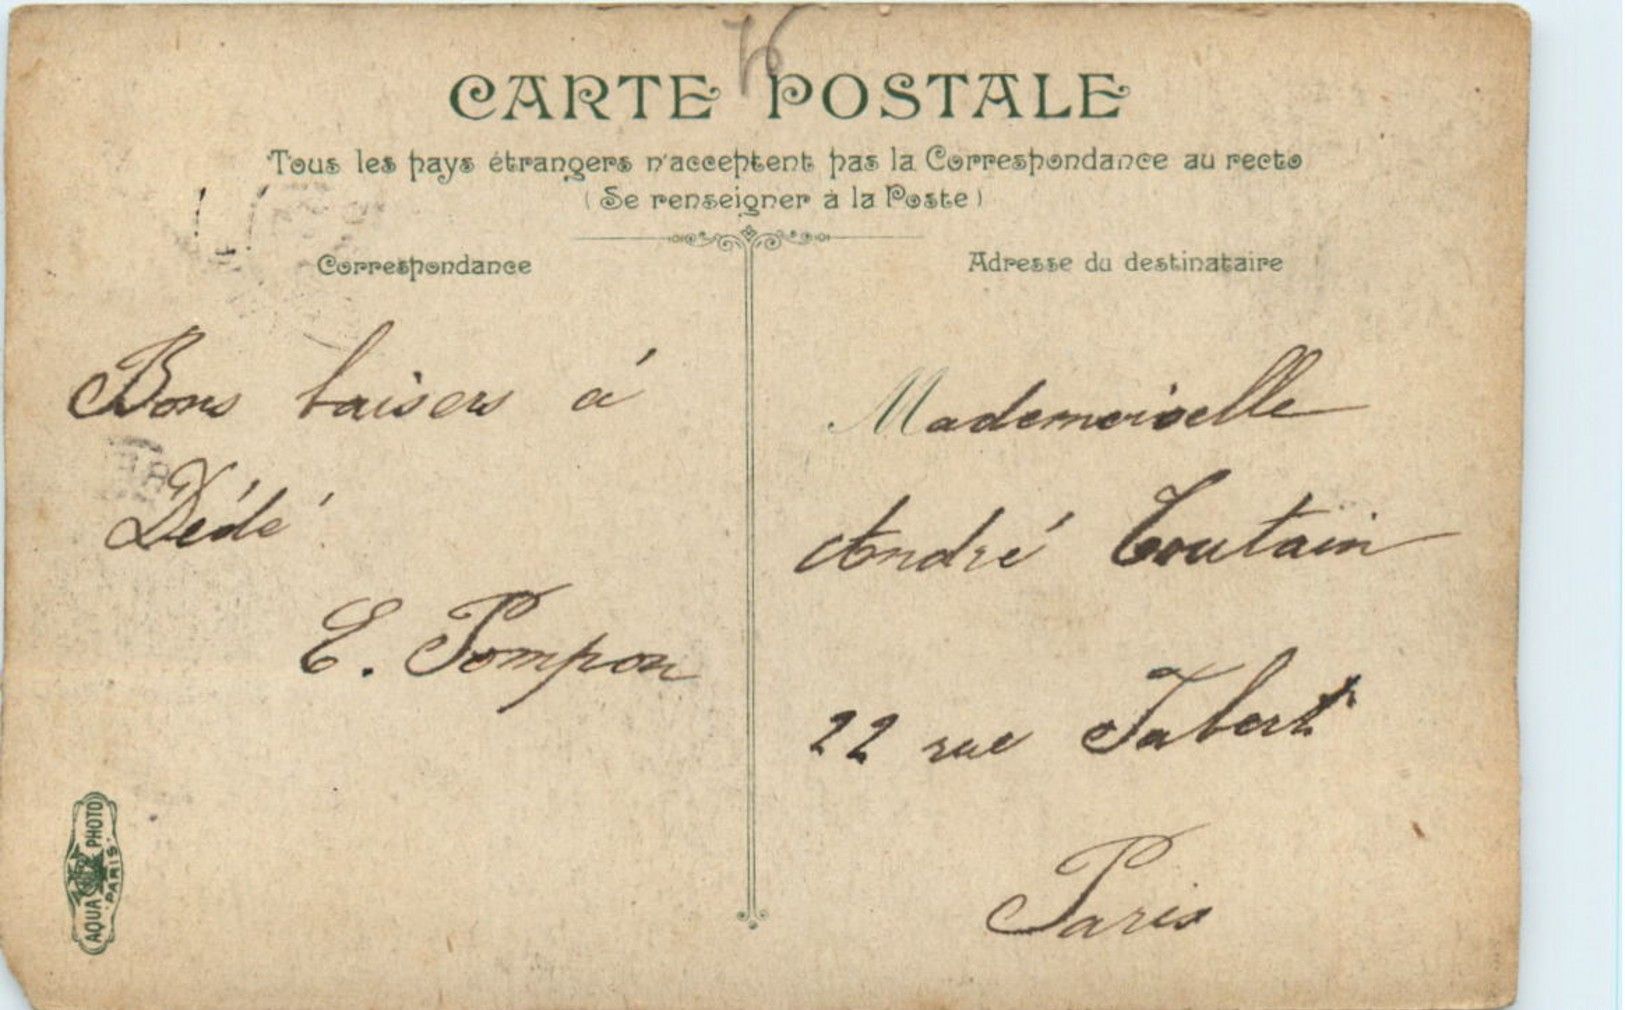 76
CARTE POSTALE
Tous les pays étrangers n'acceptent pas la Correspondance au recto
(Se renseigner à la Poste)
Correspondance
Bons baisers á
Dédé
E. Pompon
AQUA PHOTO
PARIS
Adresse du destinataire
Mademoiselle
André Toutain
22 rue Jabert
Paris